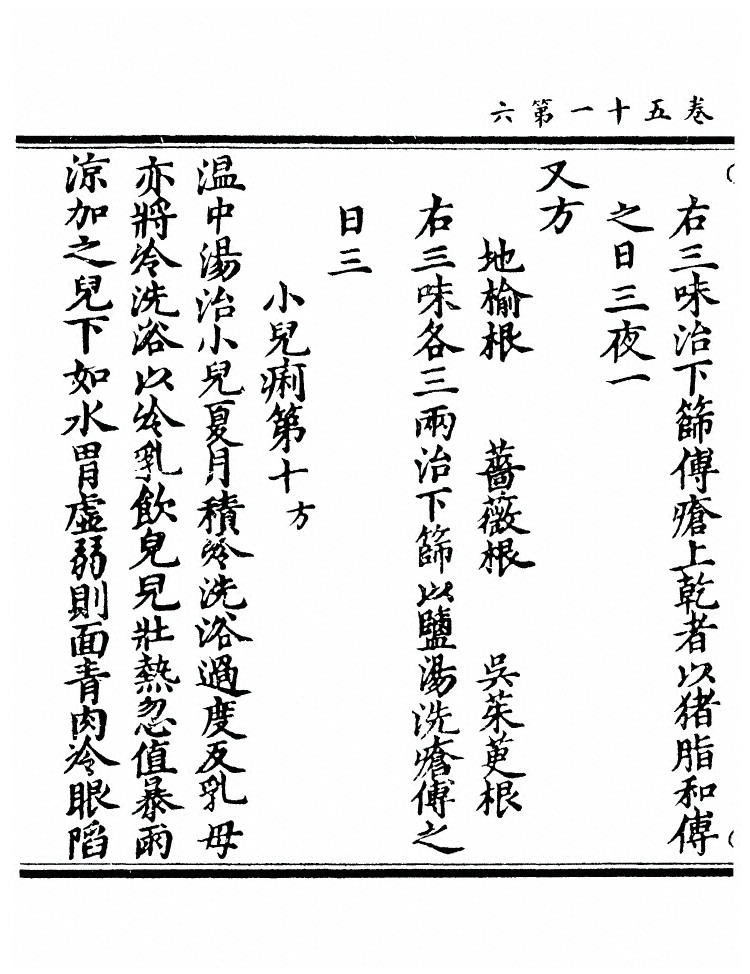 卷五十一第六
右三味治下篩傅瘡上乾者以猪脂和傅
之日三夜一
又方
地榆根　薔薇根　吳茱萸根
右三味各三兩治下篩以鹽湯洗瘡傅之
日三
小兒痢第十方
温中湯治小兒夏月積冷洗浴過度及乳母
亦將冷洗浴以冷乳飲兒兒壯熱忽值暴雨
涼加之兒下如水胃虛弱則面青肉冷眼陷